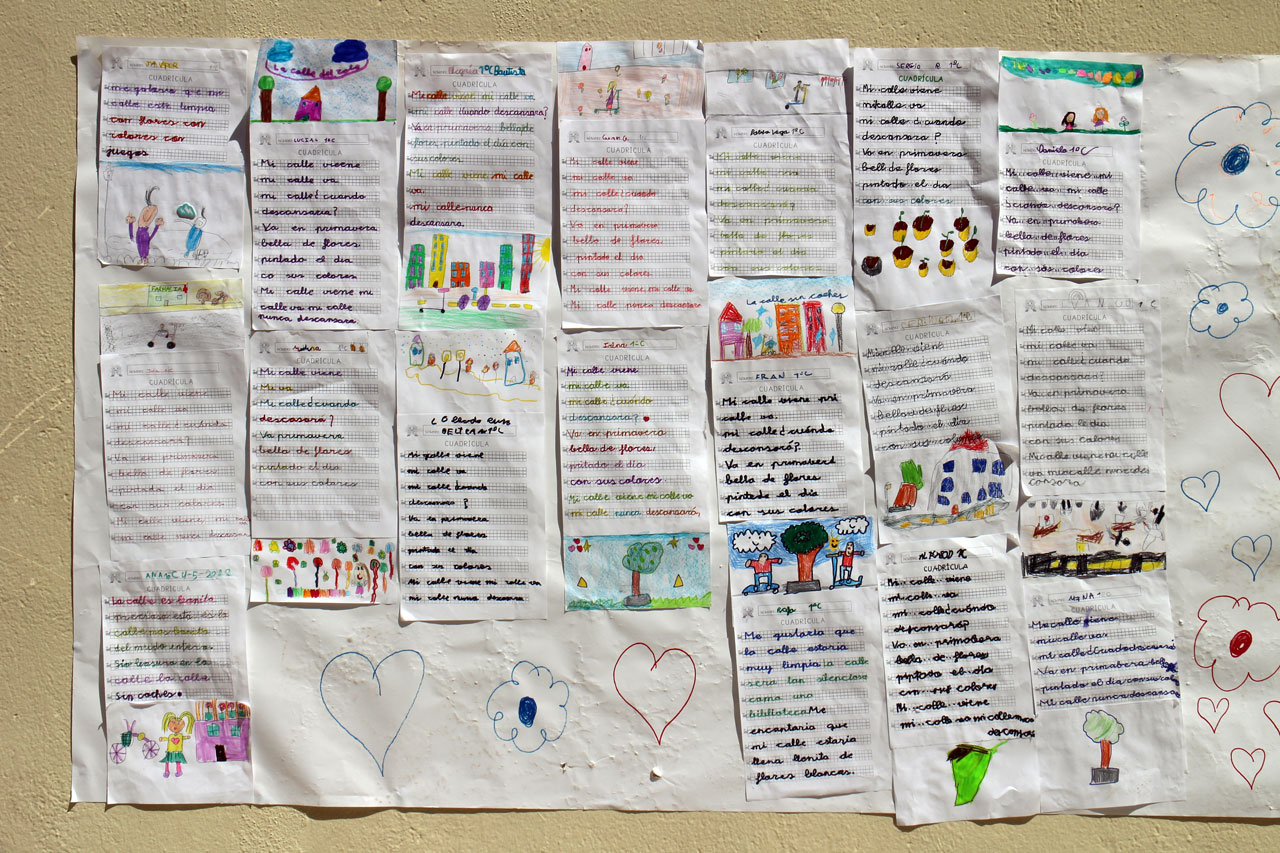 CUADRÍCULA
me gustaria que me
calle este limpia
con flores con
colores con
juegos
FARMACIA
CUADRÍCULA
Mi calle viene
mi calle va
mi calle cuando
descansara?
Va en primavera
bella de flores
pintado el dia
con sus colores
Mi calle viene mi
calle nunca descansara
ANA 1ºC 4-5-2022
CUADRÍCULA
La calle es bonita
preciosa esta es la
calle mas bonita
del mundo entero
Sin basura en la
calle la calle
Sin coches.
La calle del
LUCIA 1ºC
CUADRÍCULA
Mi calle vieene
mi calle va
mi calle ¿cuando
descansaria?
Va en primavera
bella de flores
pintado el dia
co sus colores
Mi calle viene mi
calle va mi calle
nunca descansara
CUADRÍCULA
Mi calle viene
Mi va
Mi calle ¿cuando
descasara?
Va primavera
bella de flores
pintado el dia
con sus colores
Alegria 1ºC Bautista
CUADRÍCULA
Mi calle viene mi calle va
mi calle cuando descansara?
Va en primavera bella de
flores, pintado el dia con
sus colores
Mi calle viene mi calle
va
mi calle nunca
descansara.
1ºC
CUADRÍCULA
Mi calle viene
mi calle va
mi calle ¿cuando
descansara ?
Va la primavera
bella de flores
pintado el dia
con sus colores
Mi calle viene mi calle va
mi calle nunca descansara
CUADRÍCULA
Mi calle viene
mi calle va
mi calle ¿cuando
descansara?
Va en primavera
bella de flores
pintado el dia
con sus colores
Mi calle viene, mi calle va
Mi calle nunca descansara
Irina 1ºC
CUADRÍCULA
Mi calle viene
mi calle va
mi calle ¿cuando
descansara?
Va en primavera
bella de flores
pintado el dia
con sus colores
Mi calle viene mi calle va
mi calle nunca descansara,
Vega 1ºC
CUADRÍCULA
Mi calle viene
mi calle va
mi calle ¿cuando
descansara?
Va en primavera
bella de flores
pintado el dia
con sus colores
La calle sin coches
FRAN 1ºC
CUADRÍCULA
Mi calle viene mi
calle va
mi calle ¿cuándo
descansará?
Va en primaverá
bella de flores
pintado el día
con sus colores
1ºC
CUADRÍCULA
Me gustaria que
la calle estaria
muy limpia la calle
seria tan silenciosa
como una
biblioteca Me
encantaria que
mi calle estaria
llena llenita de
flores blancas.
SERGIO R 1ºC
CUADRÍCULA
Mi calle viene
mi calle va
mi calle ¿cuando
descansara?
Va en primavera
bella de flores
pintado el dia
con sus colores
CUADRÍCULA
Mi calle viene
mi calle ¿cuándo
descansará
Va en primavera
bella de flores
pintado el dia
con sus colores
ALEJANDRO 1ºC
CUADRÍCULA
Mi calle viene
mi calle va
mi calle ¿cuándo
descansará?
Va en primabera
bella de flores
pintado el día
con sus colores
Mi calle viene
Daniela 1ºC
CUADRÍCULA
Mi calle viene mi
calle va mi calle
¿cuando descansara?
Va en primabera
bella de flores
pintado el dia
con sus colores
CUADRÍCULA
Mi calle viene
mi calle va
mi calle ¿cuando
descansara?
Va en primavera
bella de flores
pintado el dia
con sus colores
CUADRÍCULA
Mi calle viene
mi calle va
pintado el dia con sus
Mi calle nunca descansa